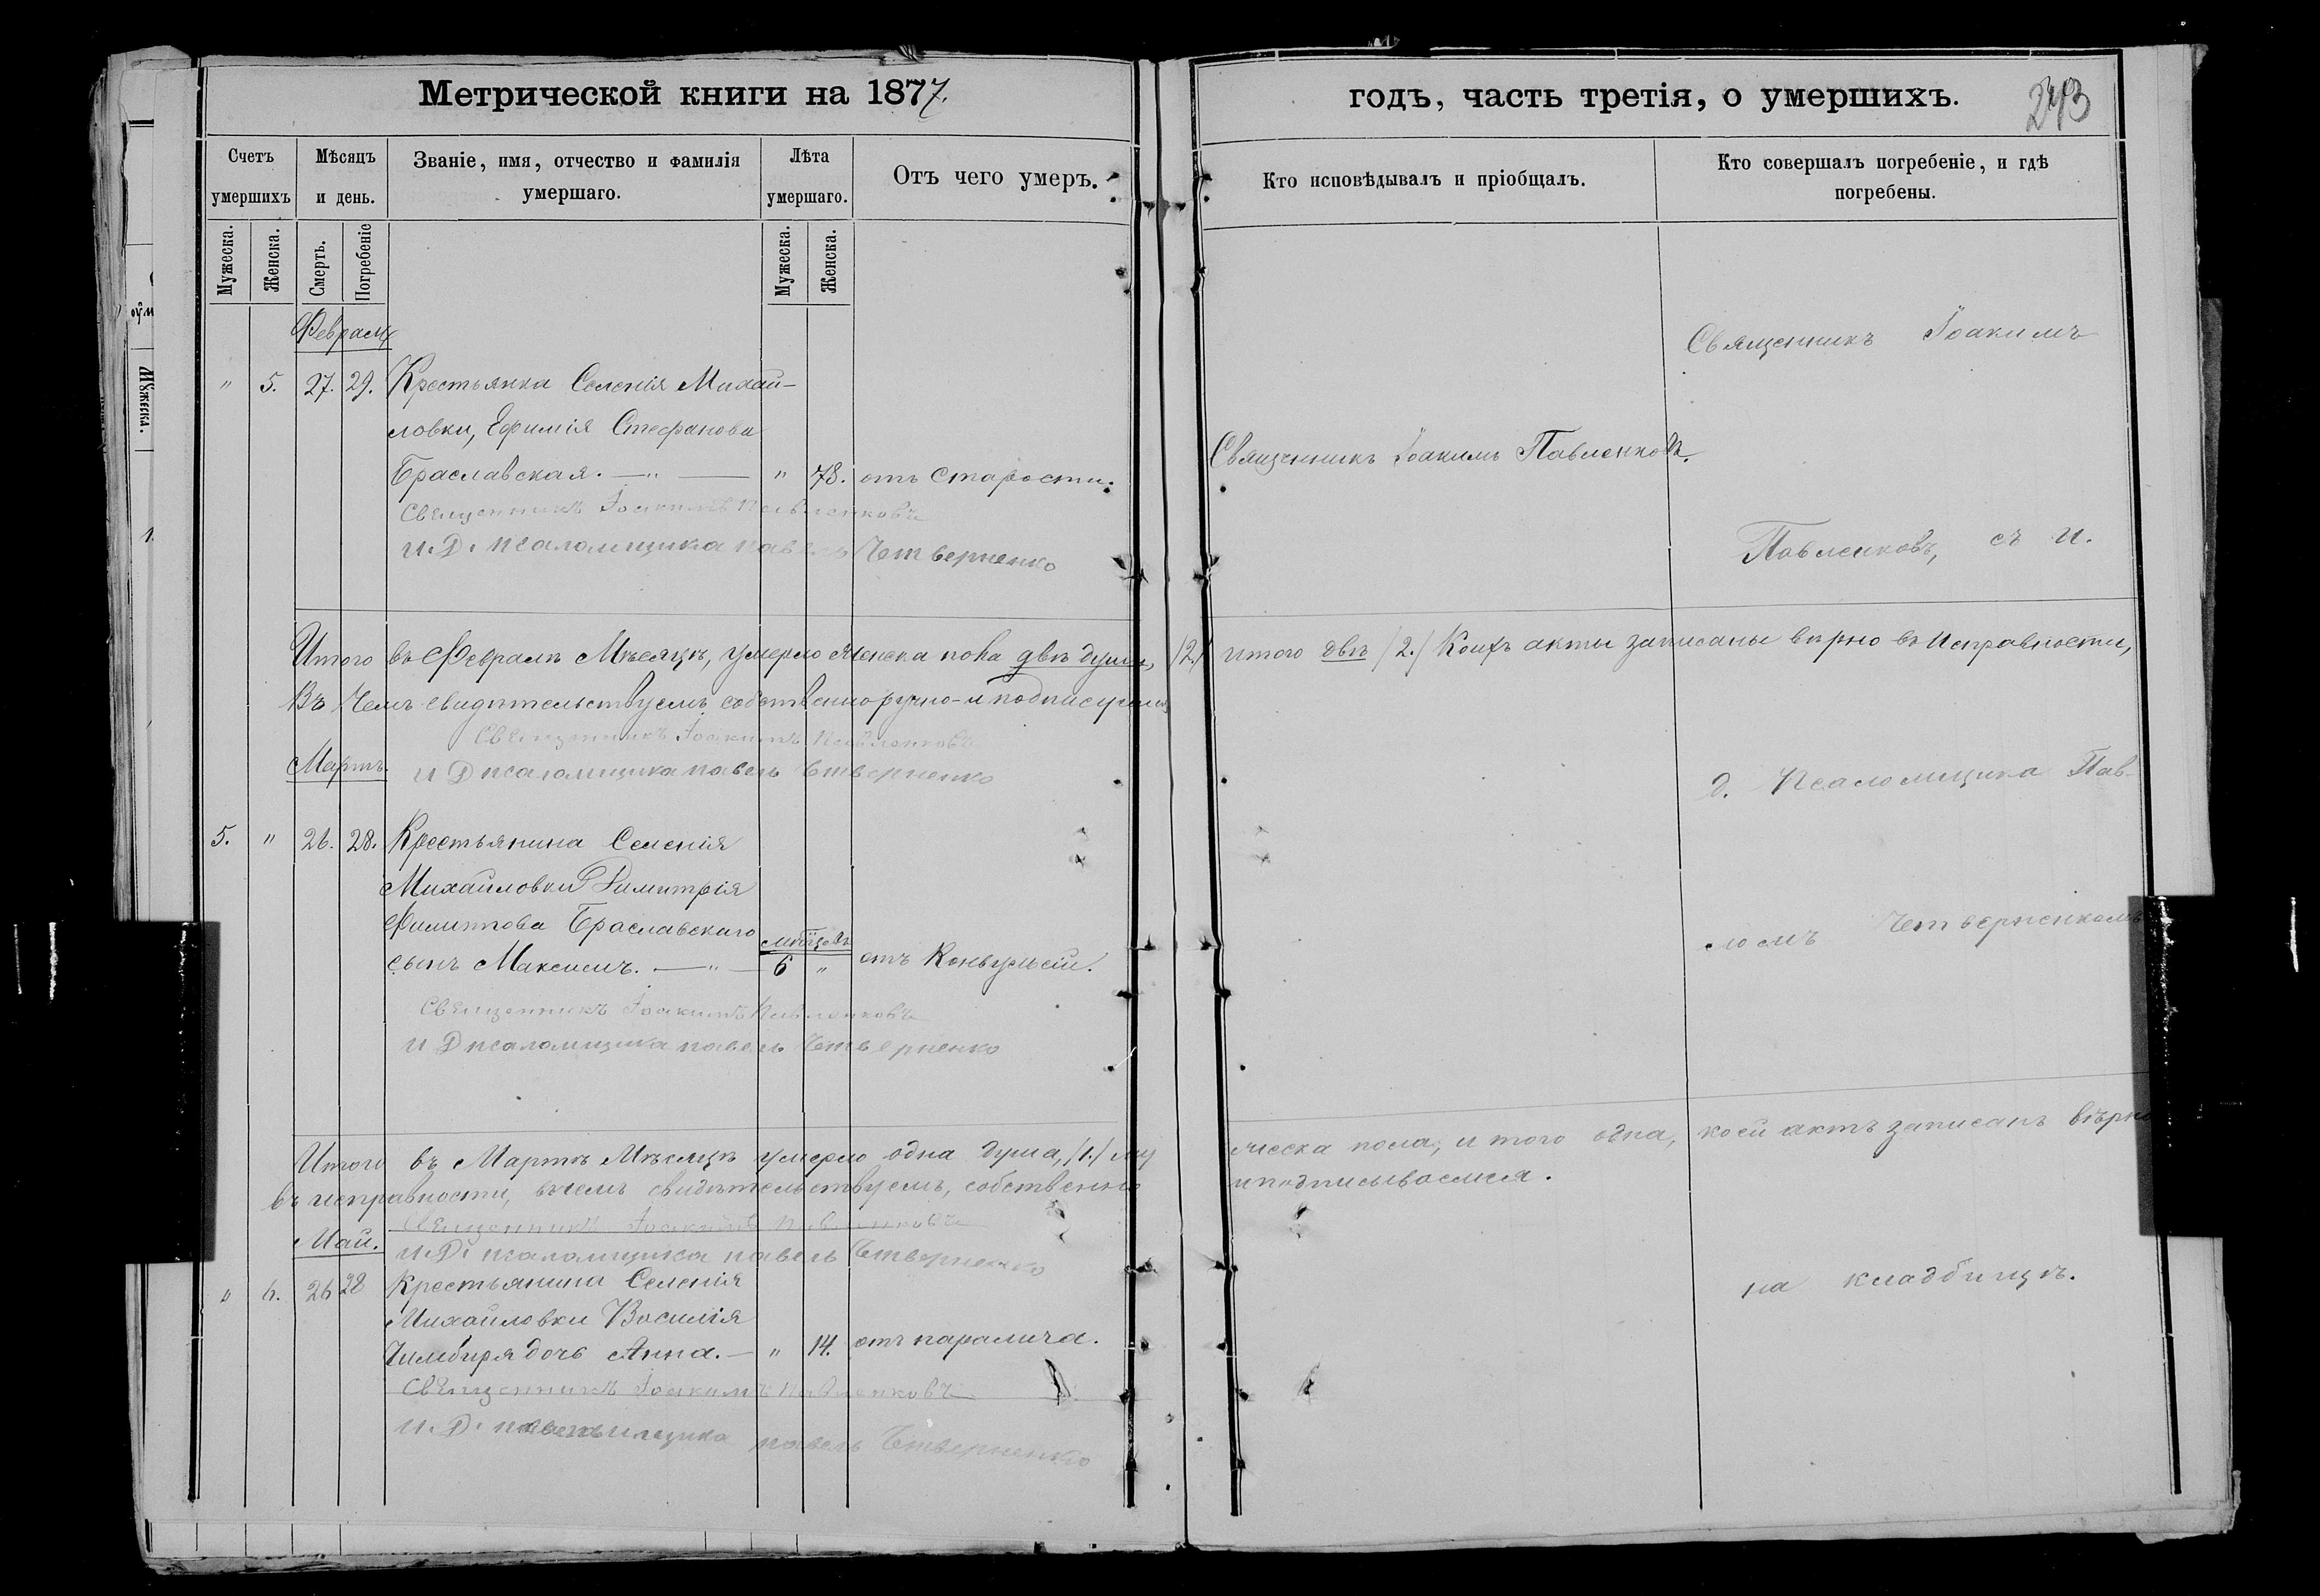 Метрической книги на 1877.
годъ, часть третія, о умершихъ.
Счетъ умершихъ
Мѣсяцъ и день.
Званіе, имя, отчество и фамилія умершаго.
Лѣта умершаго.
Отъ чего умеръ.
Кто исповѣдывалъ и пріобщалъ.
Кто совершалъ погребеніе, и гдѣ погребены.
Мужеска.
Женска.
Смерть.
Погребеніе
Мужеска.
Женска.
Февраль
" 5. 27. 29. Крестьянка Селенія Михай-
ловки, Ефимія Стефанова
Браславская. — " — " 78. отъ старости.
Священникъ Іоакимъ Павленковъ
И. Д. псаломщика павелъ Четверненко
Священникъ Іоакимъ Павленковъ.
Священникъ Іоакимъ
Павленковъ, съ и.
Итого въ Февралѣ Мѣсяцѣ, умерло женска пола двѣ души, /2./ итого двѣ /2./ Коихъ акты записаны вѣрно въ исправности,
Въ чемъ свидѣтельствуемъ собственноручно и подписуемся
Священникъ Іоакимъ Павленковъ
И Д псаломщика павелъ Четверненко
Мартъ.
д. Псаломщика Пав-
5. " 26. 28. Крестьянина Селенія
Михайловки Димитрія
Филиппова Браславскаго
сынъ Максимъ. — " — мѣсяцовъ 6 " отъ Конвульсій.
ломъ Четверненкомъ
Священникъ Іоакимъ Павленковъ
И Д псаломщика павелъ Четверненко
Итого въ Мартѣ Мѣсяцѣ умерло одна душа, /1./ му
ческа пола, и того одна, коей актъ записанъ вѣрно
въ исправности, въ чемъ свидѣтельствуемъ, собственно
и подписываемся.
Священникъ Іоакимъ Павленковъ
И. Д. псаломщика павелъ Четверненко
Май.
" 6. 26 28 Крестьянина Селенія
Михайловки Василія
Чимбиря дочь Анна. — " 14. отъ паралича.
на кладбищѣ.
Священникъ Іоакимъ Павленковъ
И. Д. псаломщика павелъ Четверненко